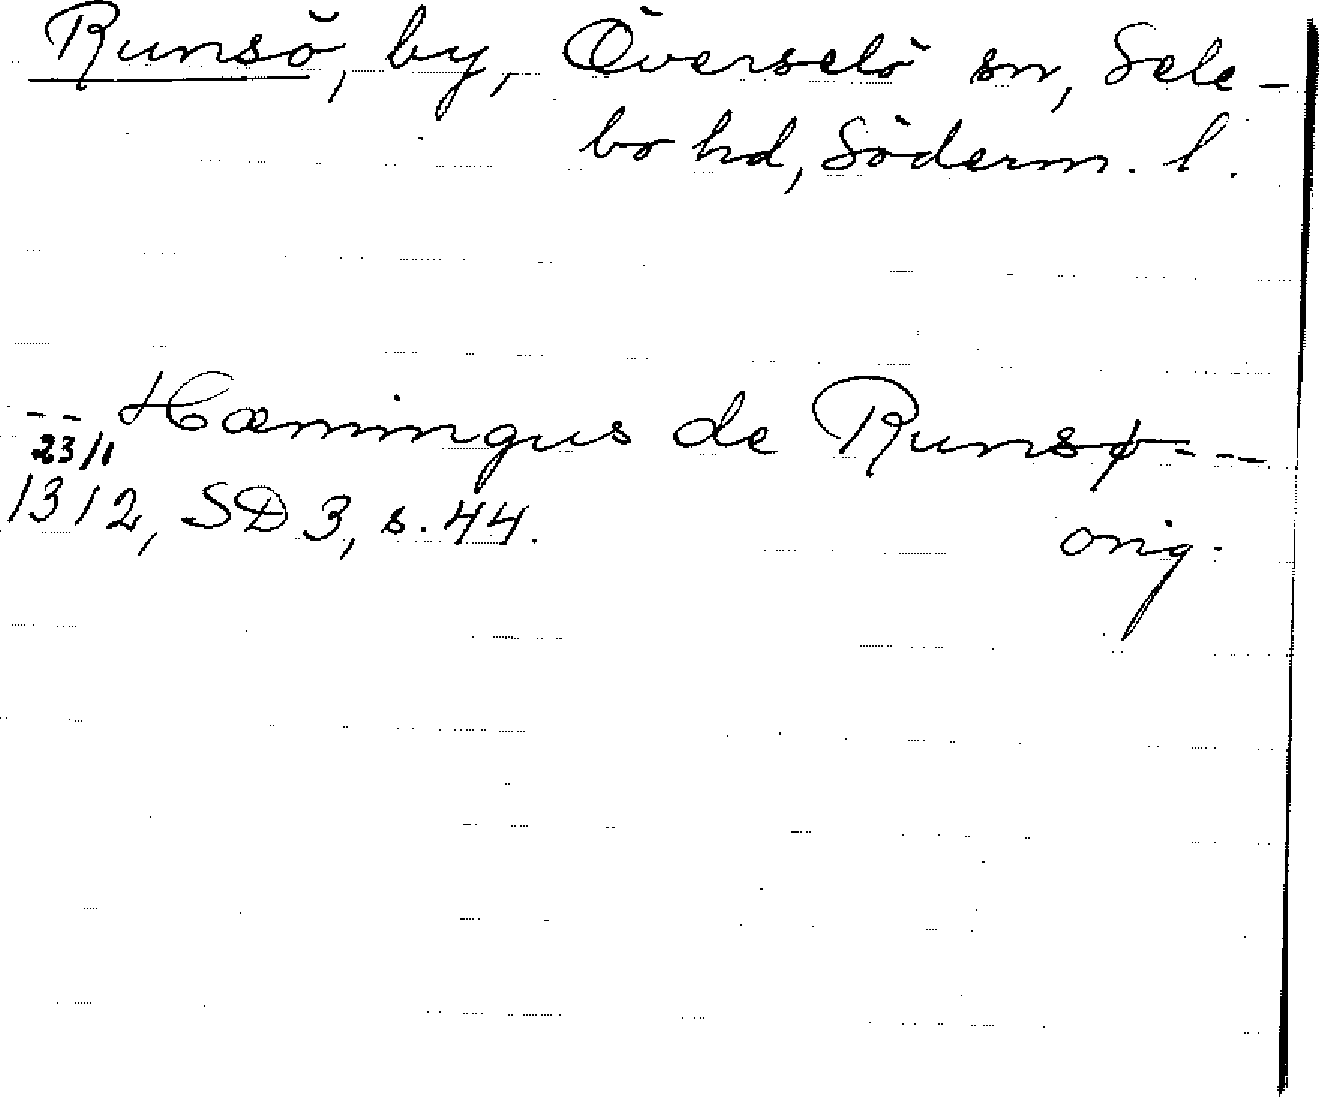 Runsö, by, Överselö sn, Sele-
bo hd, Söderm. l.
-- Hæmingus de Runsø ---
23/1
1312, SD 3, s. 44.
orig.